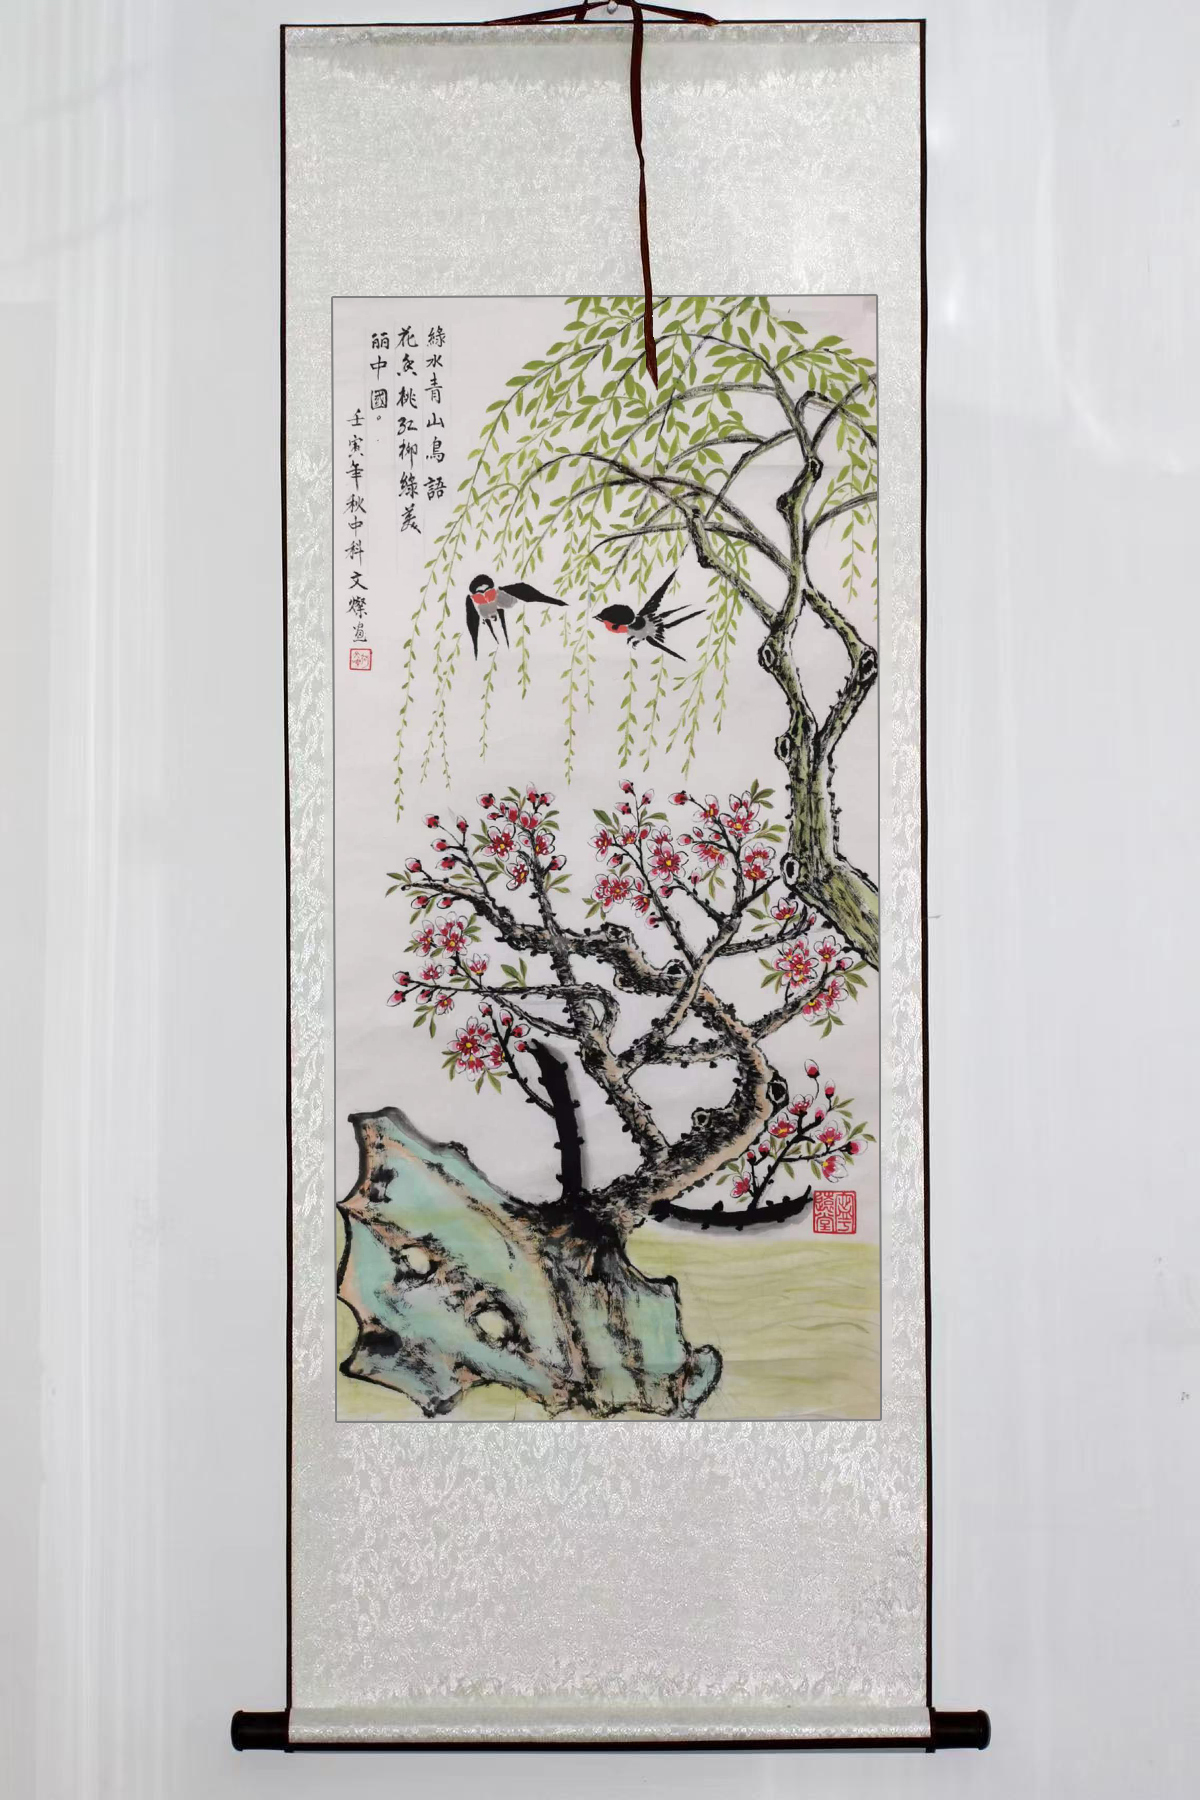 綠水青山鳥語
花香桃红柳綠美
丽中國。
壬寅年秋中科文燦画